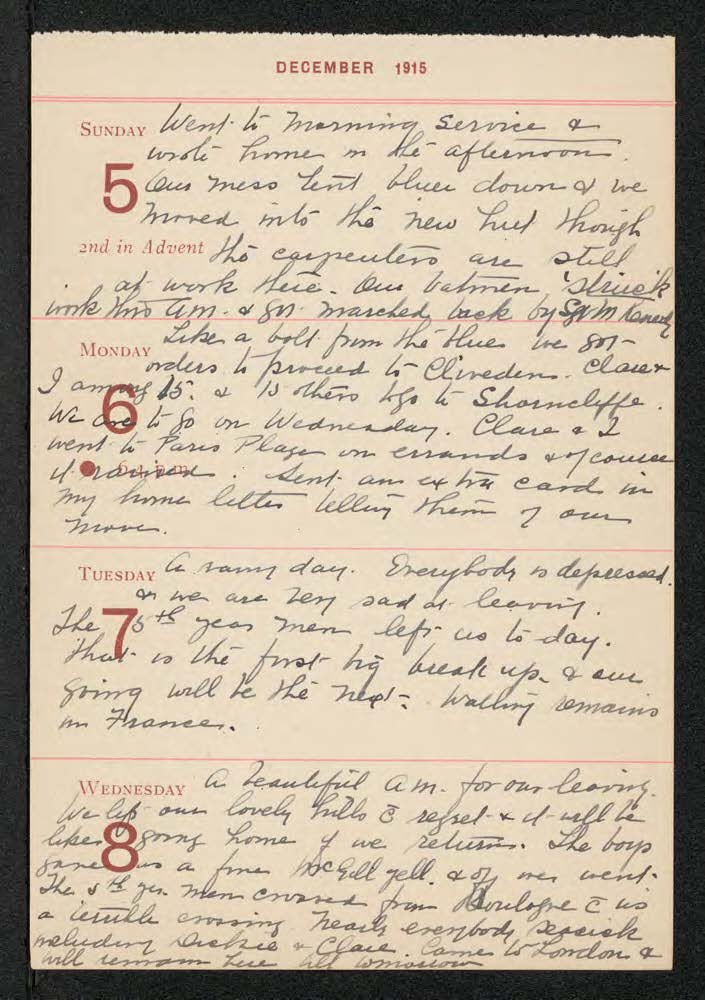 DECEMBER 1915
SUNDAY Went to morning service &
wrote home in the afternoon.
5 Our mess tent blew down & we
moved into the new hut though
2nd in Advent the carpenters are still
at work there. Our batmen 'struck
work this a.m. & got marched back by Sgt M
MONDAY Like a bolt from the blue we got
orders to proceed to Cliveden. Clare &
I among 15. & 15 others to go to Shorncliffe.
6 We are to go on Wednesday. Clare & I
went to Paris Plage on errands & of course
it rained. Sent an extra card in
my home letter telling them of our
move.
TUESDAY A rainy day. Everybody is depressed.
& we are very sad at leaving.
7 The 5th year men left us to-day.
That is the first big break up. & our
going will be the next. Walling remains
in France.
WEDNESDAY A beautiful a.m. for our leaving.
We left our lovely hills c̄ regret & it will be
8 like going home if we return. The boys
gave us a fine McGill yell. & off we went.
The 5th yr. men crossed from Boulogne c̄ us
a terrible crossing. Nearly everybody seasick
including Dickie & Clare. Came to London &
will remain here till tomorrow